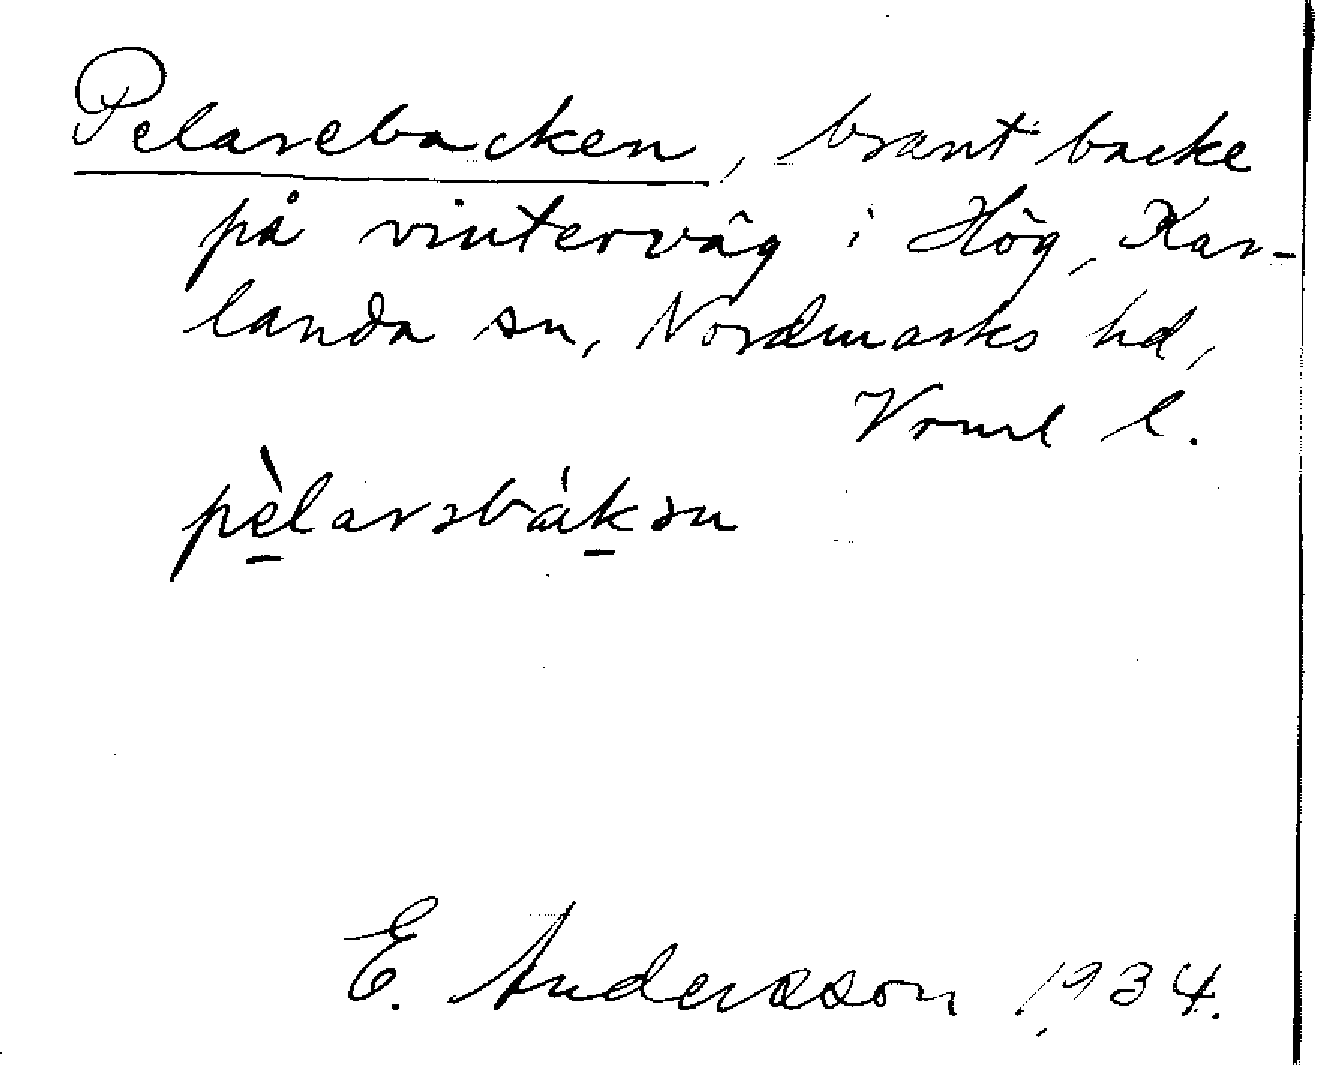 Pelarebacken, brant backe
på vinterväg i Hög, Kar-
landa sn, Nordmarks hd,
Vrml l.
pèlarəbák̠ən
E. Andersson 1934.